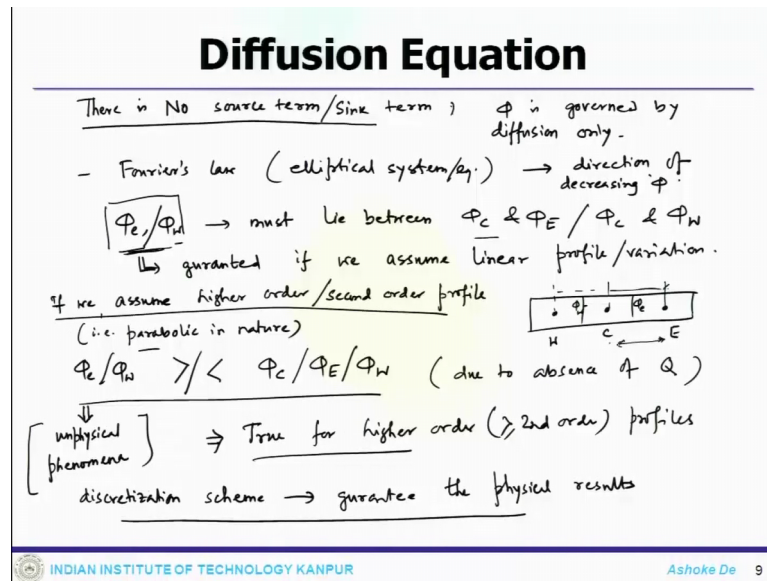 Diffusion Equation
There is No source term/Sink term ; φ is governed by
diffusion only -
- Fourier's law (elliptical system/eq.) → direction of
decreasing φ.
φe/φw → must lie between φC & φE / φC & φW
↳ guranted if we assume linear profile/variation.
If we assume higher order/second order profile
(i.e. parabolic in nature)
W C E
φe/φw >/< φC/φE/φW (due to absence of Q)
⇓
[unphysical
phenomena] ⇒ True for higher order (≥ 2nd order) profiles
discretization scheme → gurantee the physical results
INDIAN INSTITUTE OF TECHNOLOGY KANPUR
Ashoke De 9